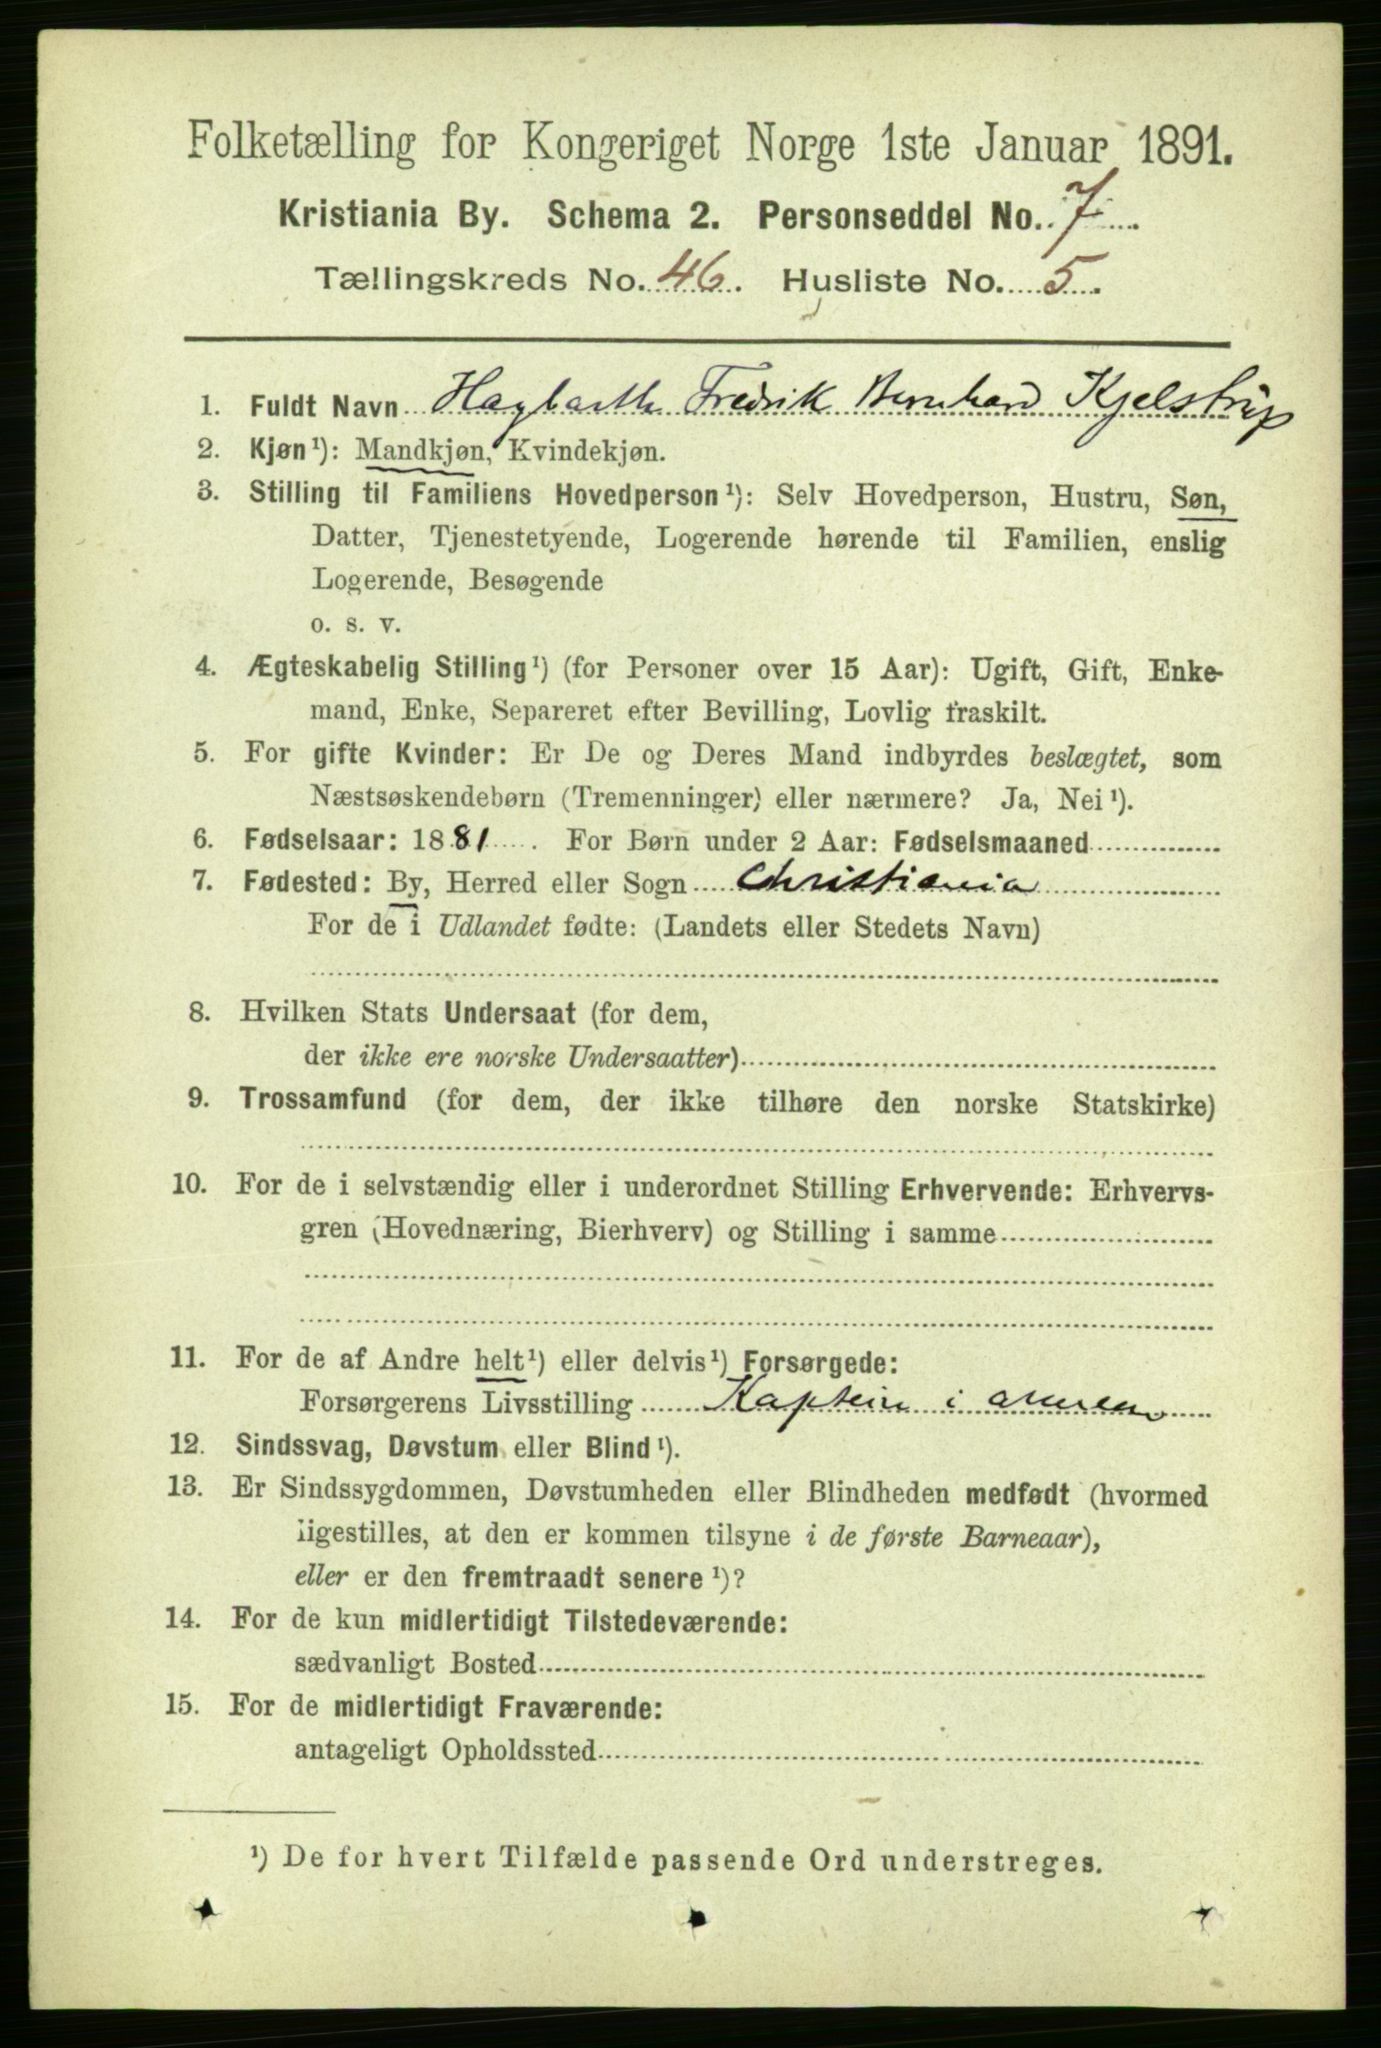 Folketælling for Kongeriget Norge 1ste Januar 1891.
Kristiania By. Schema 2. Personseddel No. 7
Tællingskreds No. 46. Husliste No. 5.
1. Fuldt Navn Hagbarth Fredrik Bernhard Kjelstrup
2. Kjøn¹): Mandkjøn, Kvindekjøn.
3. Stilling til Familiens Hovedperson¹): Selv Hovedperson, Hustru, Søn,
Datter, Tjenestetyende, Logerende hørende til Familien, enslig
Logerende, Besøgende
o. s. v.
4. Ægteskabelig Stilling¹) (for Personer over 15 Aar): Ugift, Gift, Enke-
mand, Enke, Separeret efter Bevilling, Lovlig fraskilt.
5. For gifte Kvinder: Er De og Deres Mand indbyrdes beslægtet, som
Næstsøskendebørn (Tremenninger) eller nærmere? Ja, Nei¹).
6. Fødselsaar: 1881. For Børn under 2 Aar: Fødselsmaaned
7. Fødested: By, Herred eller Sogn Christiania
For de i Udlandet fødte: (Landets eller Stedets Navn)
8. Hvilken Stats Undersaat (for dem,
der ikke ere norske Undersaatter)
9. Trossamfund (for dem, der ikke tilhøre den norske Statskirke)
10. For de i selvstændig eller i underordnet Stilling Erhvervende: Erhvervs-
gren (Hovednæring, Bierhverv) og Stilling i samme
11. For de af Andre helt¹) eller delvis¹) Forsørgede:
Forsørgerens Livsstilling Kaptein i armeen
12. Sindssvag, Døvstum eller Blind¹).
13. Er Sindssygdommen, Døvstumheden eller Blindheden medfødt (hvormed
ligestilles, at den er kommen tilsyne i de første Barneaar),
eller er den fremtraadt senere¹)?
14. For de kun midlertidigt Tilstedeværende:
sædvanligt Bosted
15. For de midlertidigt Fraværende:
antageligt Opholdssted
¹) De for hvert Tilfælde passende Ord understreges.